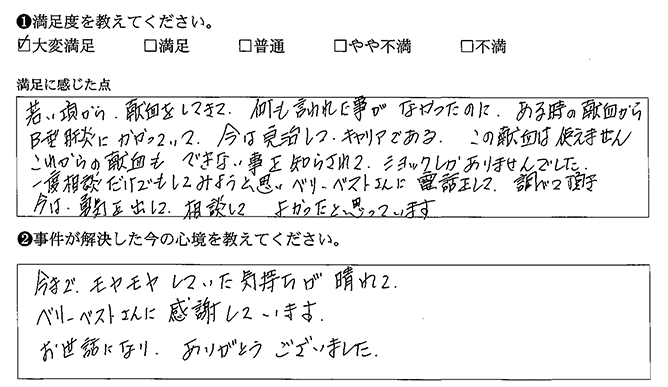 ❶満足度を教えてください。
☑大変満足 □満足 □普通 □やや不満 □不満
満足に感じた点
若い頃から、献血をしてきて、何も言われた事がなかったのに、ある時の献血から
B型肝炎にかかっていて、今は完治して、キャリアである。この献血は使えません
これからの献血もできない事を知らされて、ショックしかありませんでした。
一度相談だけでもしてみようと思いベリーベストさんに電話をして、調べて頂き
今は、勇気を出して、相談してよかったと思っています
❷事件が解決した今の心境を教えてください。
今まで、モヤモヤしていた気持ちが晴れて、
ベリーベストさんに感謝しています。
お世話になり、ありがとうございました。